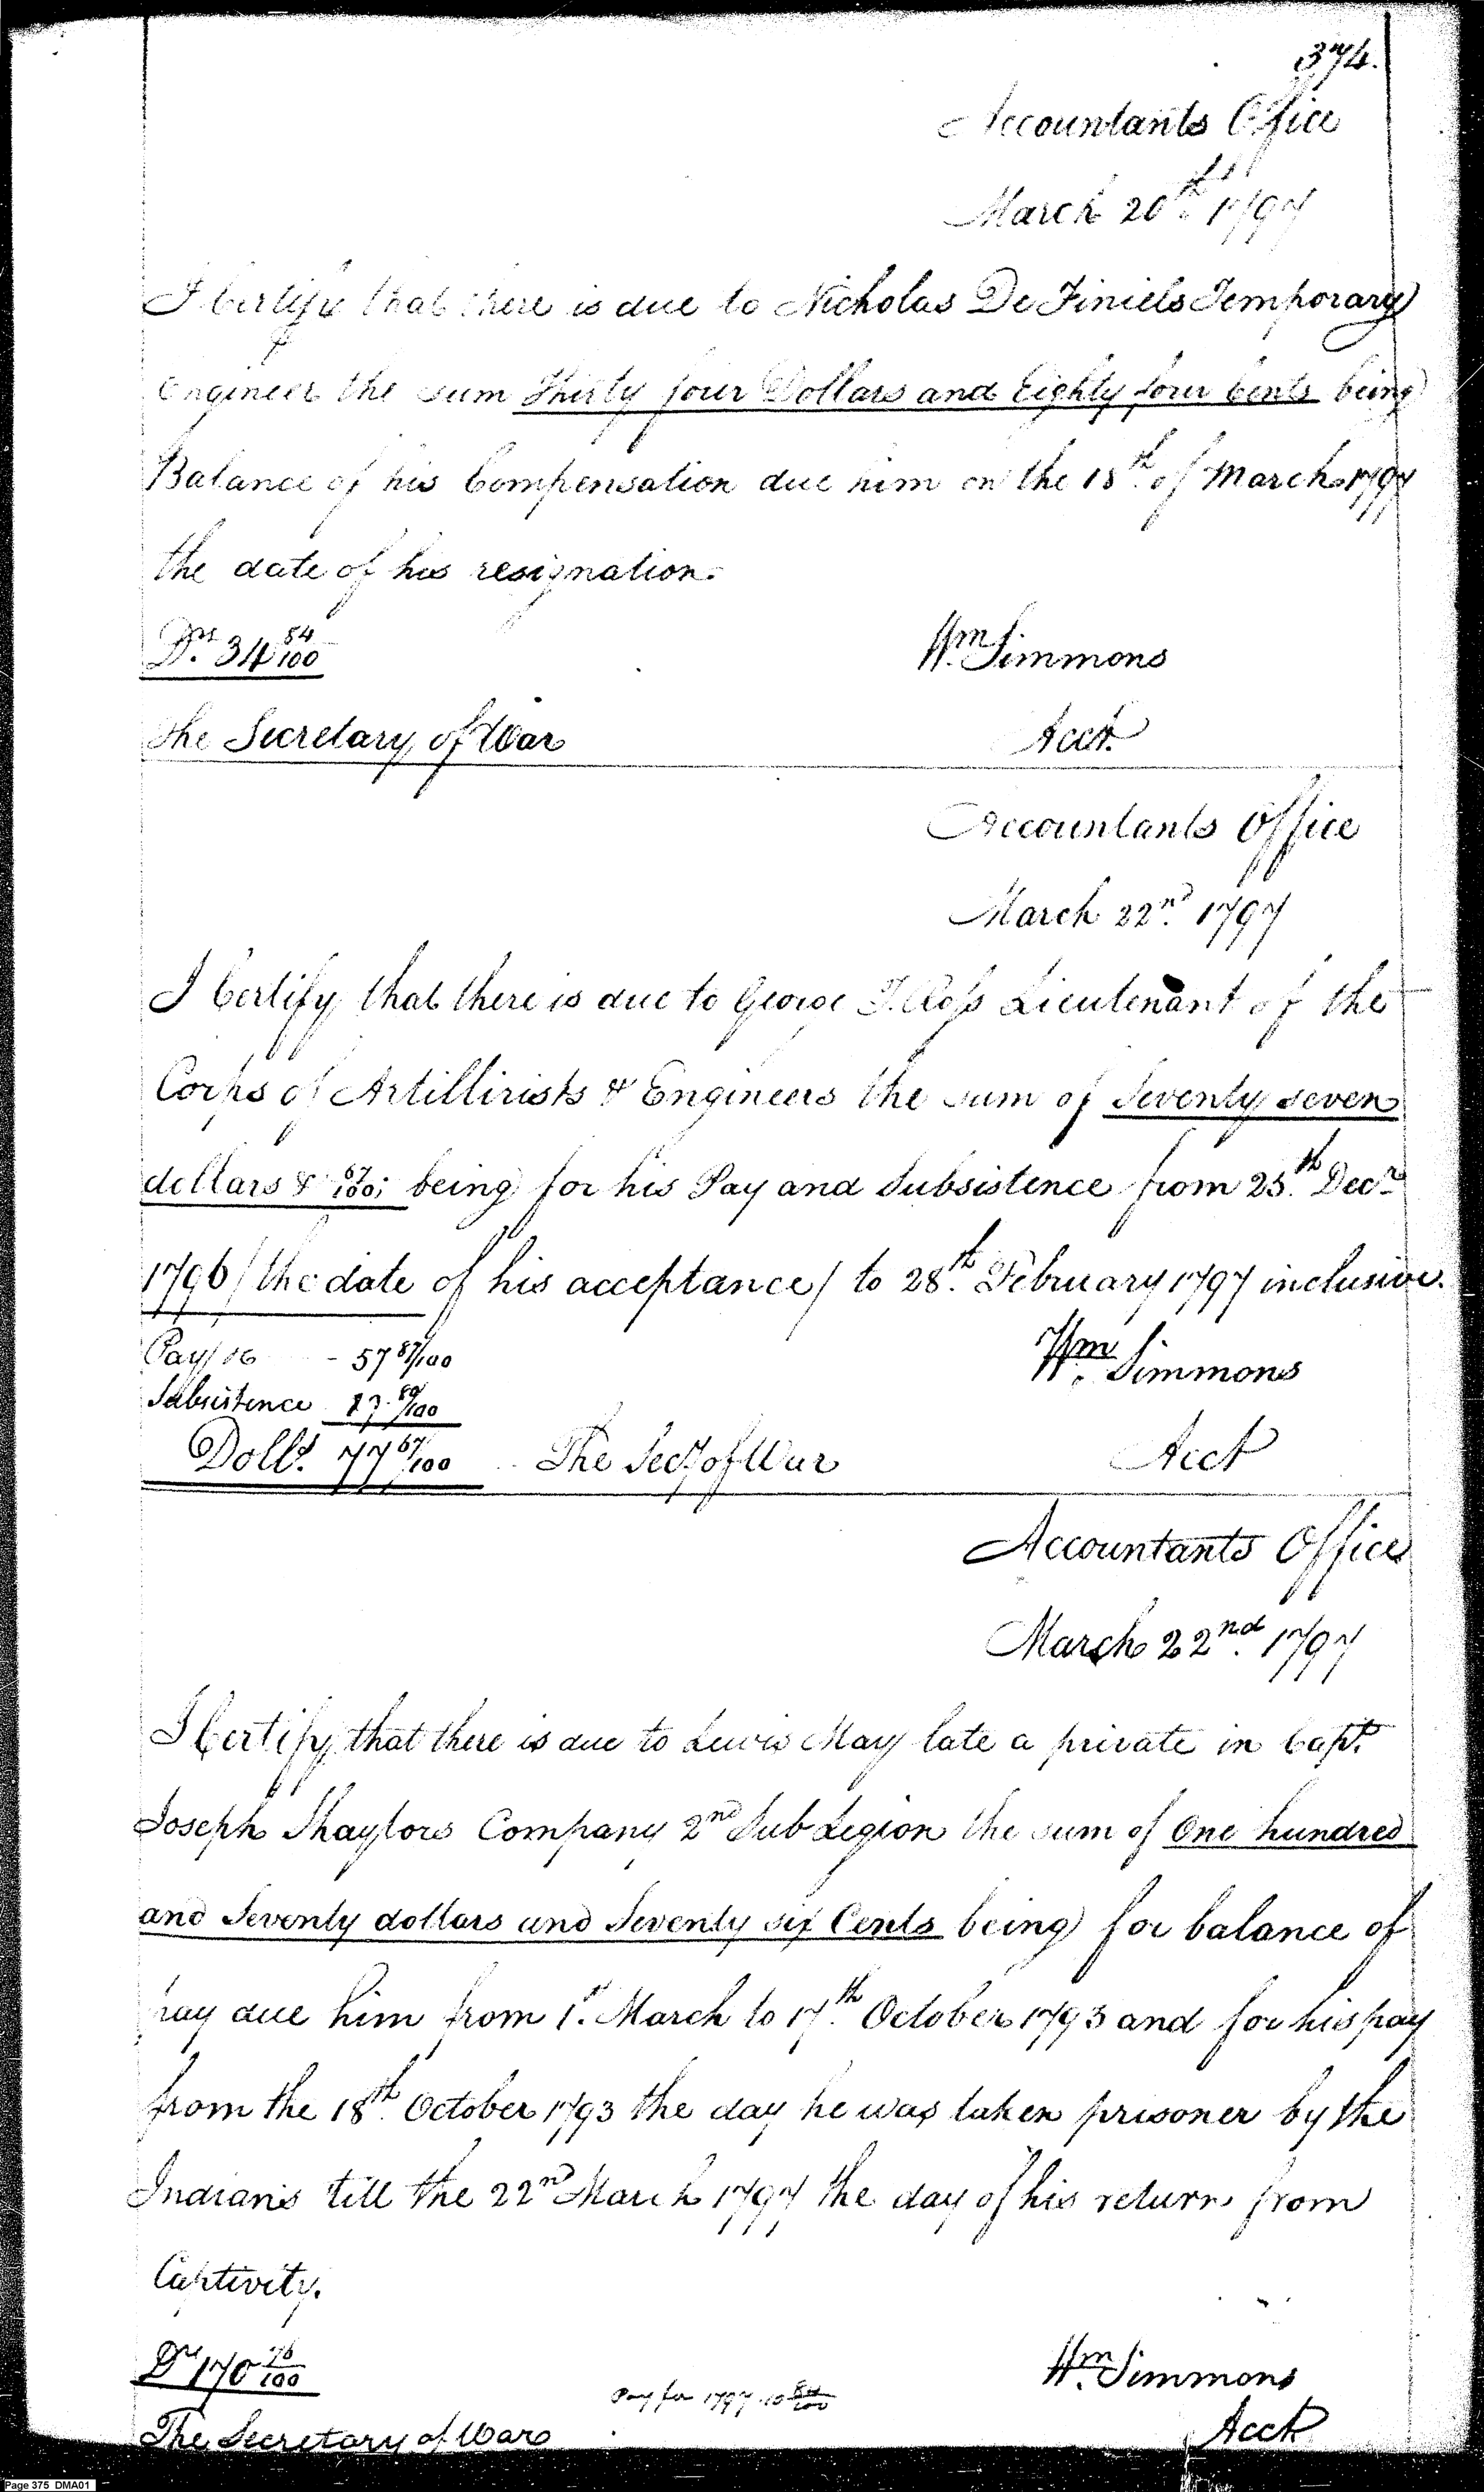 374.
Accountants Office
March 20th. 1797
I Certify that there is due to Nicholas De Finiels Temporary
Engineer the sum Thirty four Dollars and Eighty four Cents being
Balance of his Compensation due him on the 18th. of March 1797
the date of his resignation.
Drs. 34 84/100
Wm. Simmons
The Secretary of War
Acct.
Accountants Office
March 22nd. 1797
I Certify that there is due to George Ross Lieutenant of the
Corps of Artillirists & Engineers the sum of Seventy seven
dollars & 67/100; being for his Pay and Subsistence from 25.th Decr.
1796 / the date of his acceptance / to 28.th February 1797 inclusive.
Pay - 57 87/100
Wm. Simmons
Subsistence 80/100
Dolls. 77 67/100 The Secy of War
Acct
Accountants Office
March 22nd. 1797
I Certify that there is due to Lewis May late a private in Capt.
Joseph Shaylors Company 2nd Sub Legion the sum of One hundred
and Seventy dollars and Seventy six Cents being for balance of
pay due him from 1st. March to 17th. October 1793 and for his pay
from the 18th. October 1793 the day he was taken prisoner by the
Indians till the 22nd March 1797 the day of his return from
Captivity.
Dr 170 76/100
Wm. Simmons
Pay for 1797. 10 84/100
The Secretary of War
Acct
Page 375 DMA01